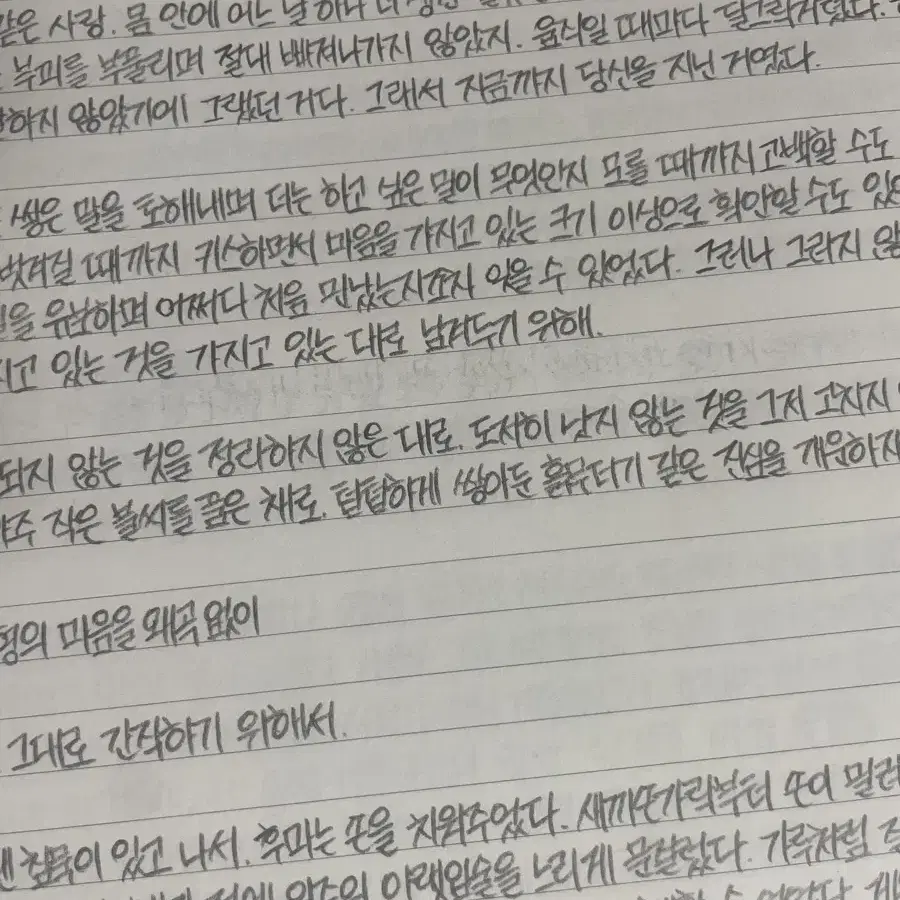 같은 사랑. 몸 안에 어느 날 하나 더
부피를 부풀리며 절대 빠져나가지 않았지. 움직일 때마다 달그락거렸다.
하지 않았기에 그랬던 거다. 그래서 지금까지 당신을 지닌 거였다.
쌓은 말을 토해내며 더는 하고 싶은 말이 무엇인지 모를 때까지 고백할 수도
벗겨질 때까지 키스하면서 마음을 가지고 있는 크기 이상으로 확인할 수도
을 유보하며 어쩌다 처음 만났는지조차 잊을 수 있었다. 그러나 그러지
고 있는 것을 가지고 있는 대로 남겨두기 위해.
되지 않는 것을 정리하지 않은 대로. 도저히 낫지 않는 것을 그저 고치지
작은 불씨를 품은 채로. 탑탑하게 쌓아둔 흙무더기 같은 진심을 개운하지
형의 마음을 왜곡 없이
그대로 간직하기 위해서.
침묵이 있고 나서. 후마는 손을 치워주었다. 새끼손가락부터 손이
아랫입술을 느리게 문질렀다. 가루처럼